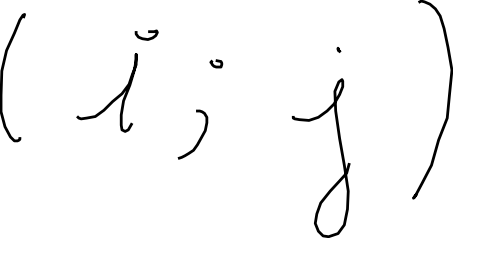 (i; j)